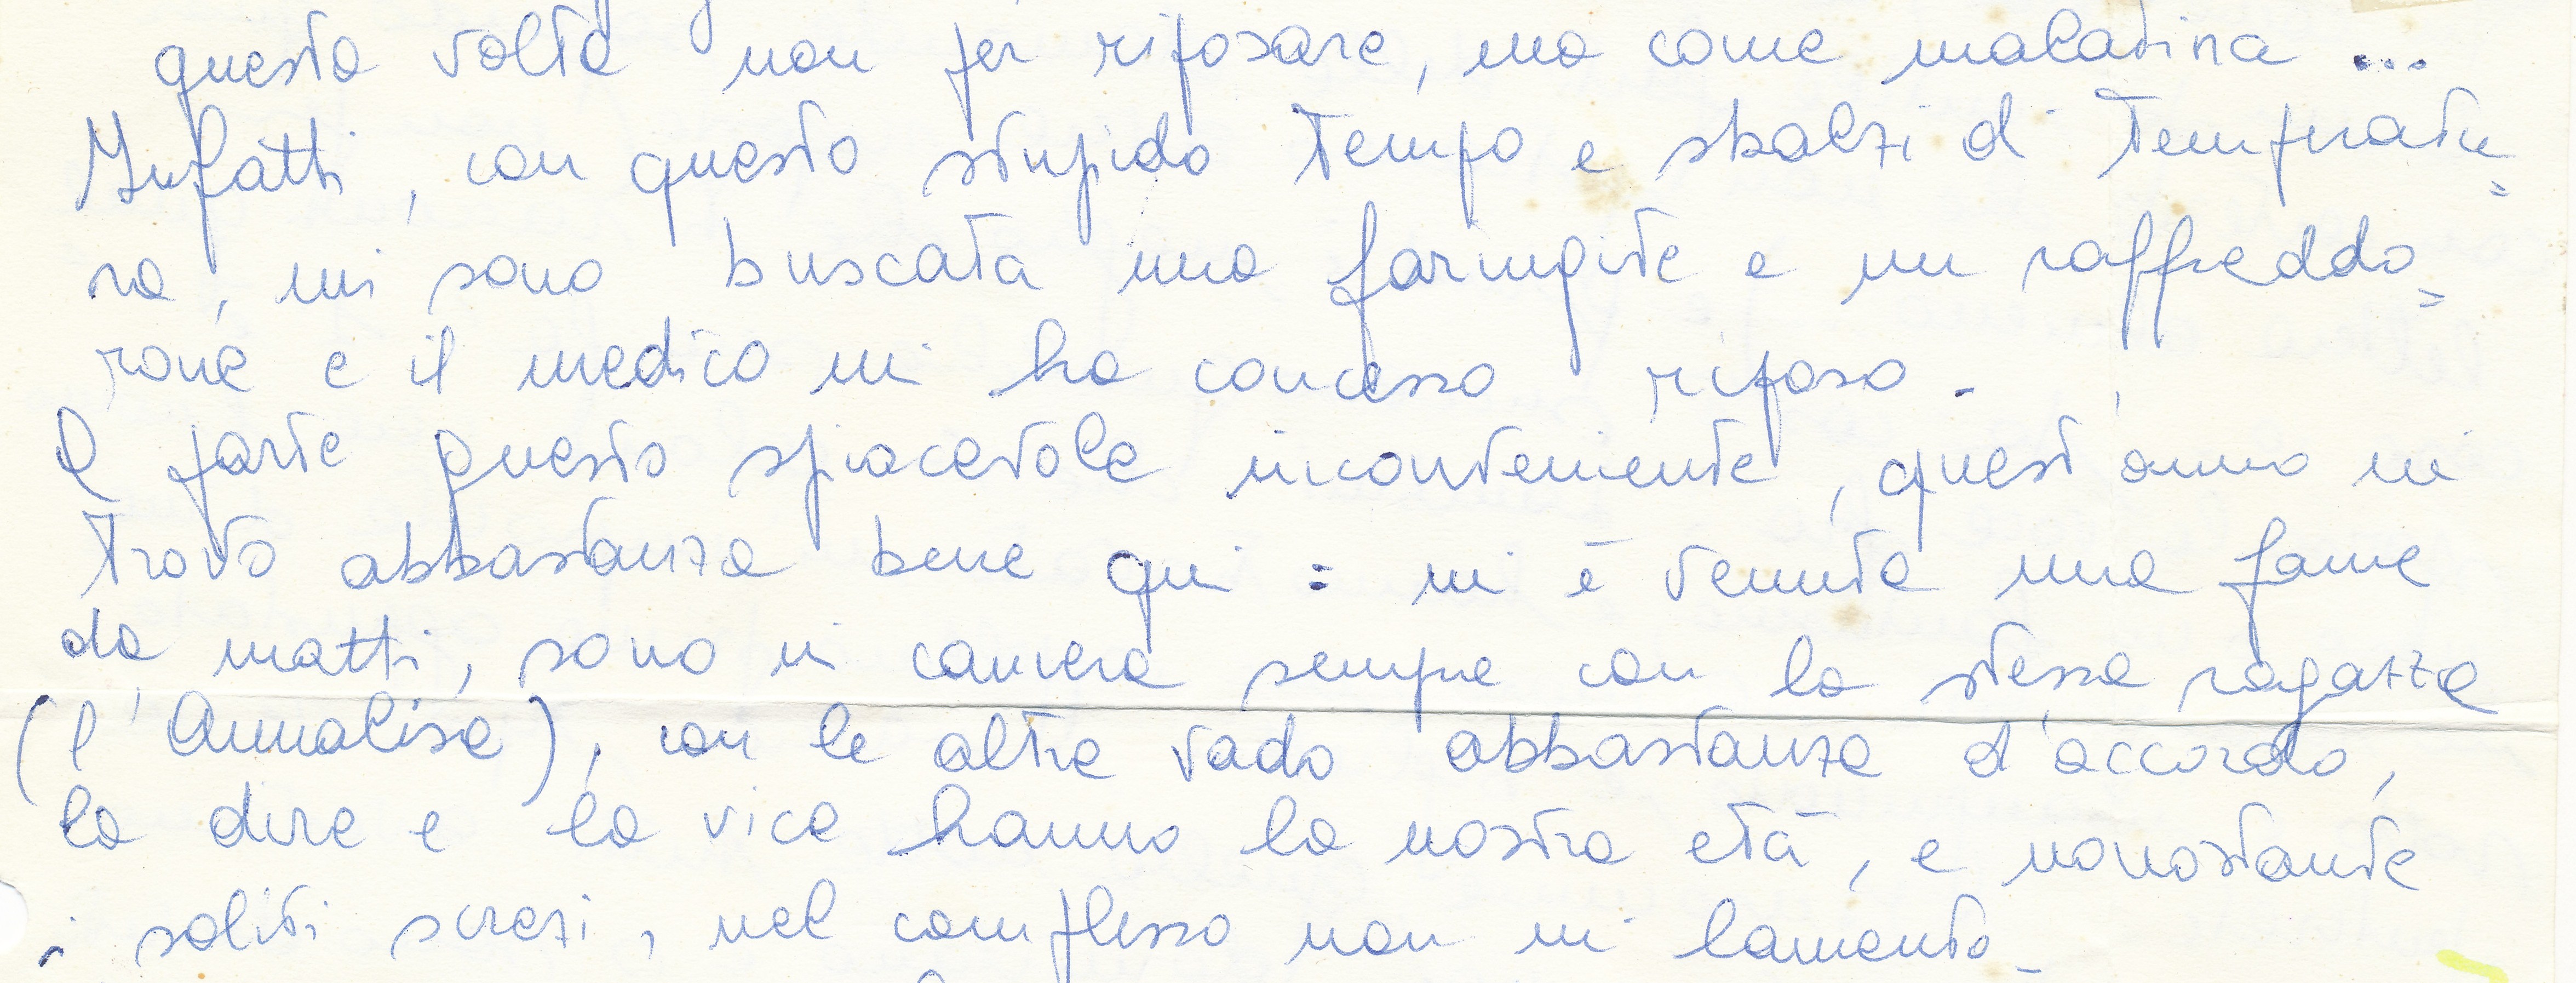 questa volta non per riposare, ma come malatina ...
Infatti, con questo stupido tempo e sbalzi di temperatu=
ra, mi sono buscata una faringite e un raffreddo=
rone e il medico mi ha concesso riposo.
A parte questo spiacevole inconveniente, quest'anno mi
trovo abbastanza bene qui : mi è venuta una fame
da matti, sono in camera sempre con la stessa ragazza
(l'Annalisa), con le altre vado abbastanza d'accordo,
la dire e la vice hanno la nostra età, e nonostante
i soliti screzi, nel complesso non mi lamento.